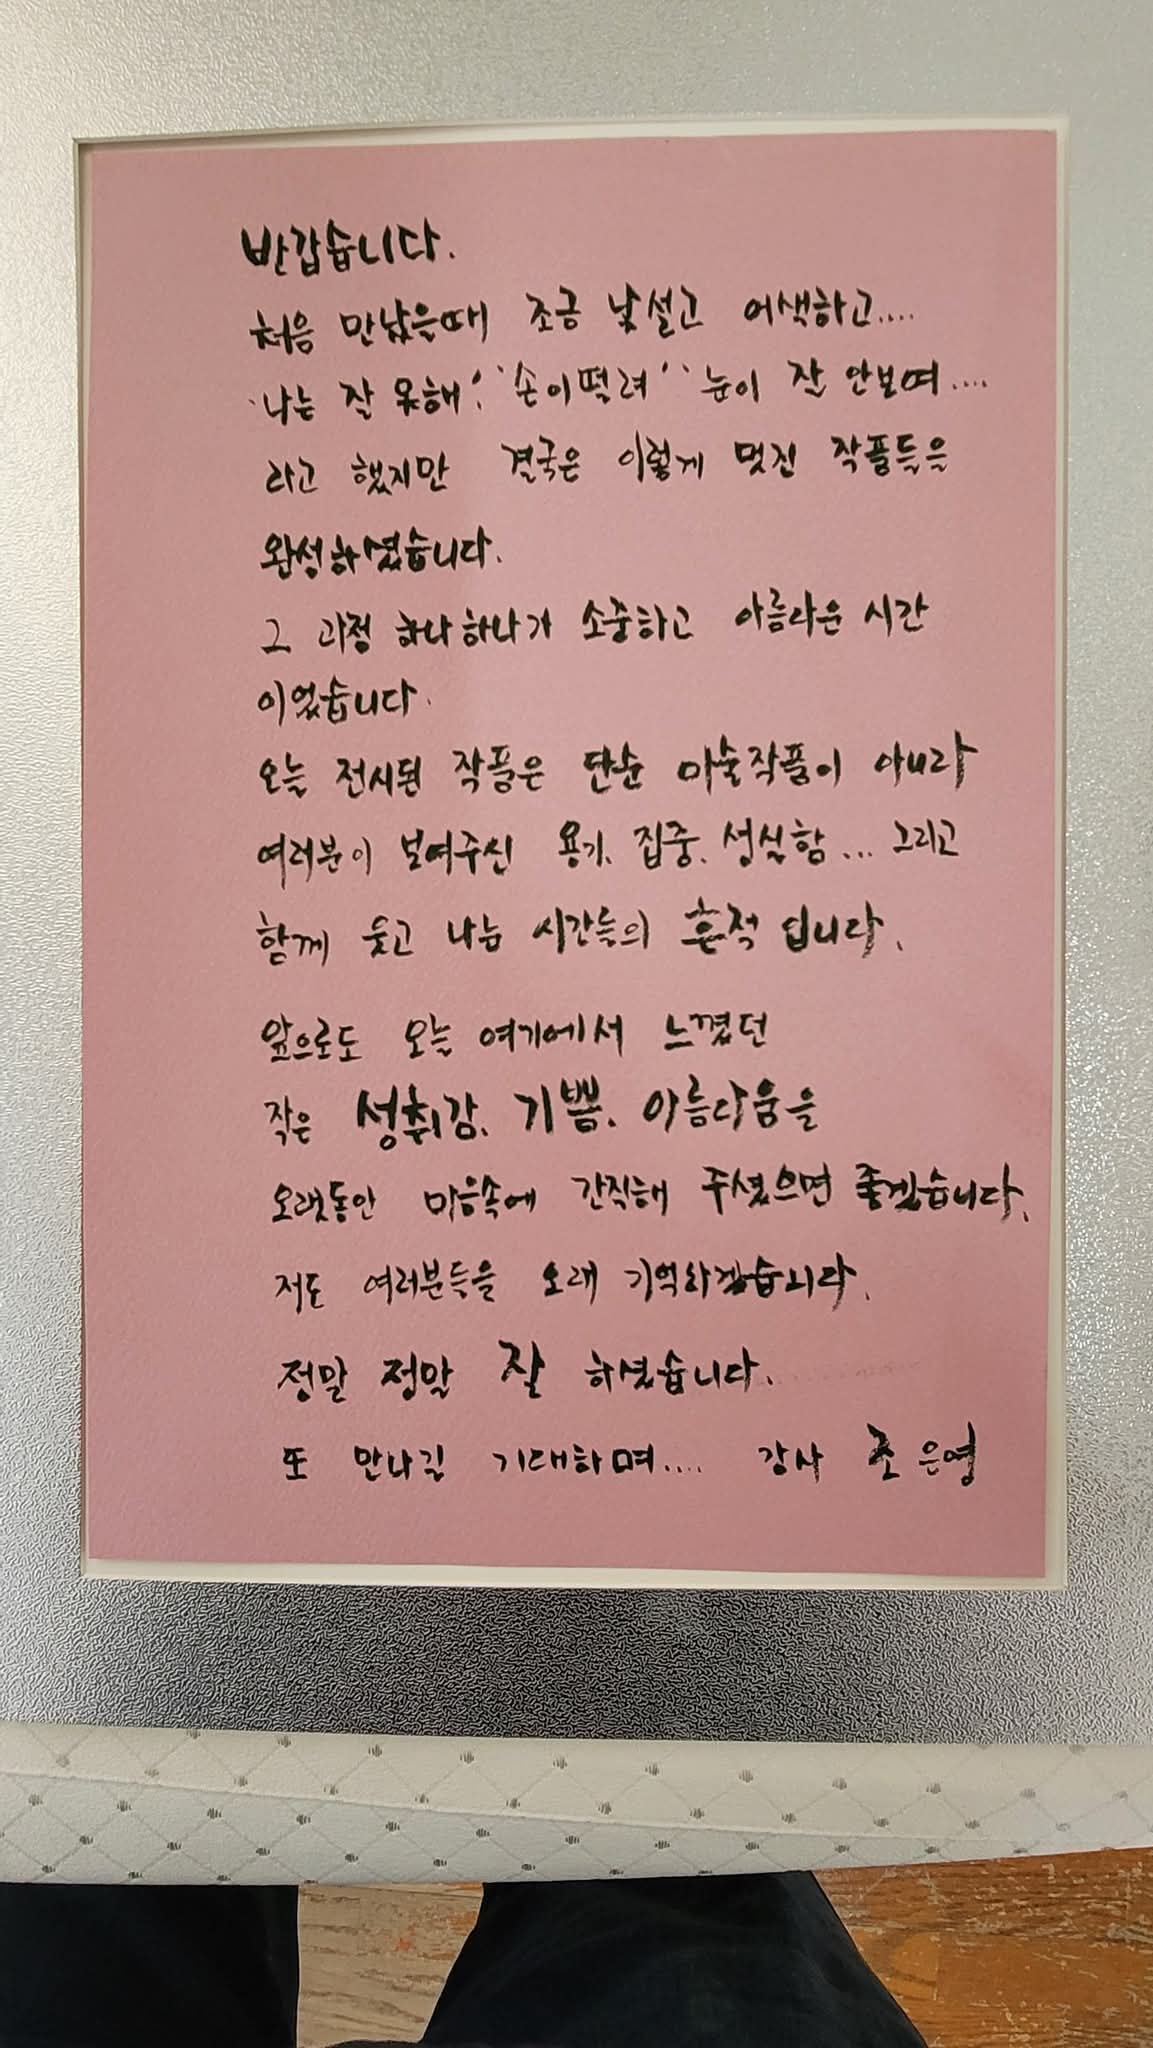 반갑습니다.
처음 만났을때 조금 낯설고 어색하고....
나는 잘 못해. "손이떨려" 눈이 잘 안보여....
라고 했지만 결국은 이렇게 멋진 작품들을
완성하셨습니다.
그 과정 하나하나가 소중하고 아름다운 시간
이었습니다.
오늘 전시된 작품은 단순 미술작품이 아니라
여러분이 보여주신 용기. 집중. 성실함... 그리고
함께 웃고 나눔 시간들의 흔적 입니다.
앞으로도 오늘 여기에서 느꼈던
작은 성취감. 기쁨. 아름다움을
오랫동안 마음속에 간직해 주셨으면 좋겠습니다.
저도 여러분들을 오래 기억하겠습니다.
정말 정말 잘 하셨습니다.
또 만나길 기대하며.... 강사 조은영